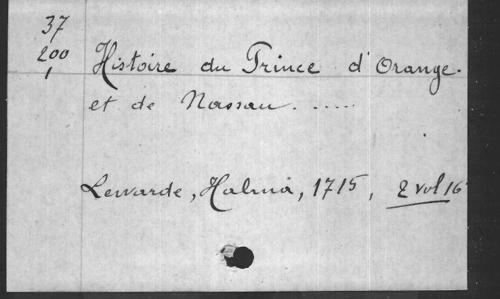 37
200
1
Histoire du Prince d'Orange.
et de Nassau. .....
Lewarde, Halma, 1715, 2 vol 16°